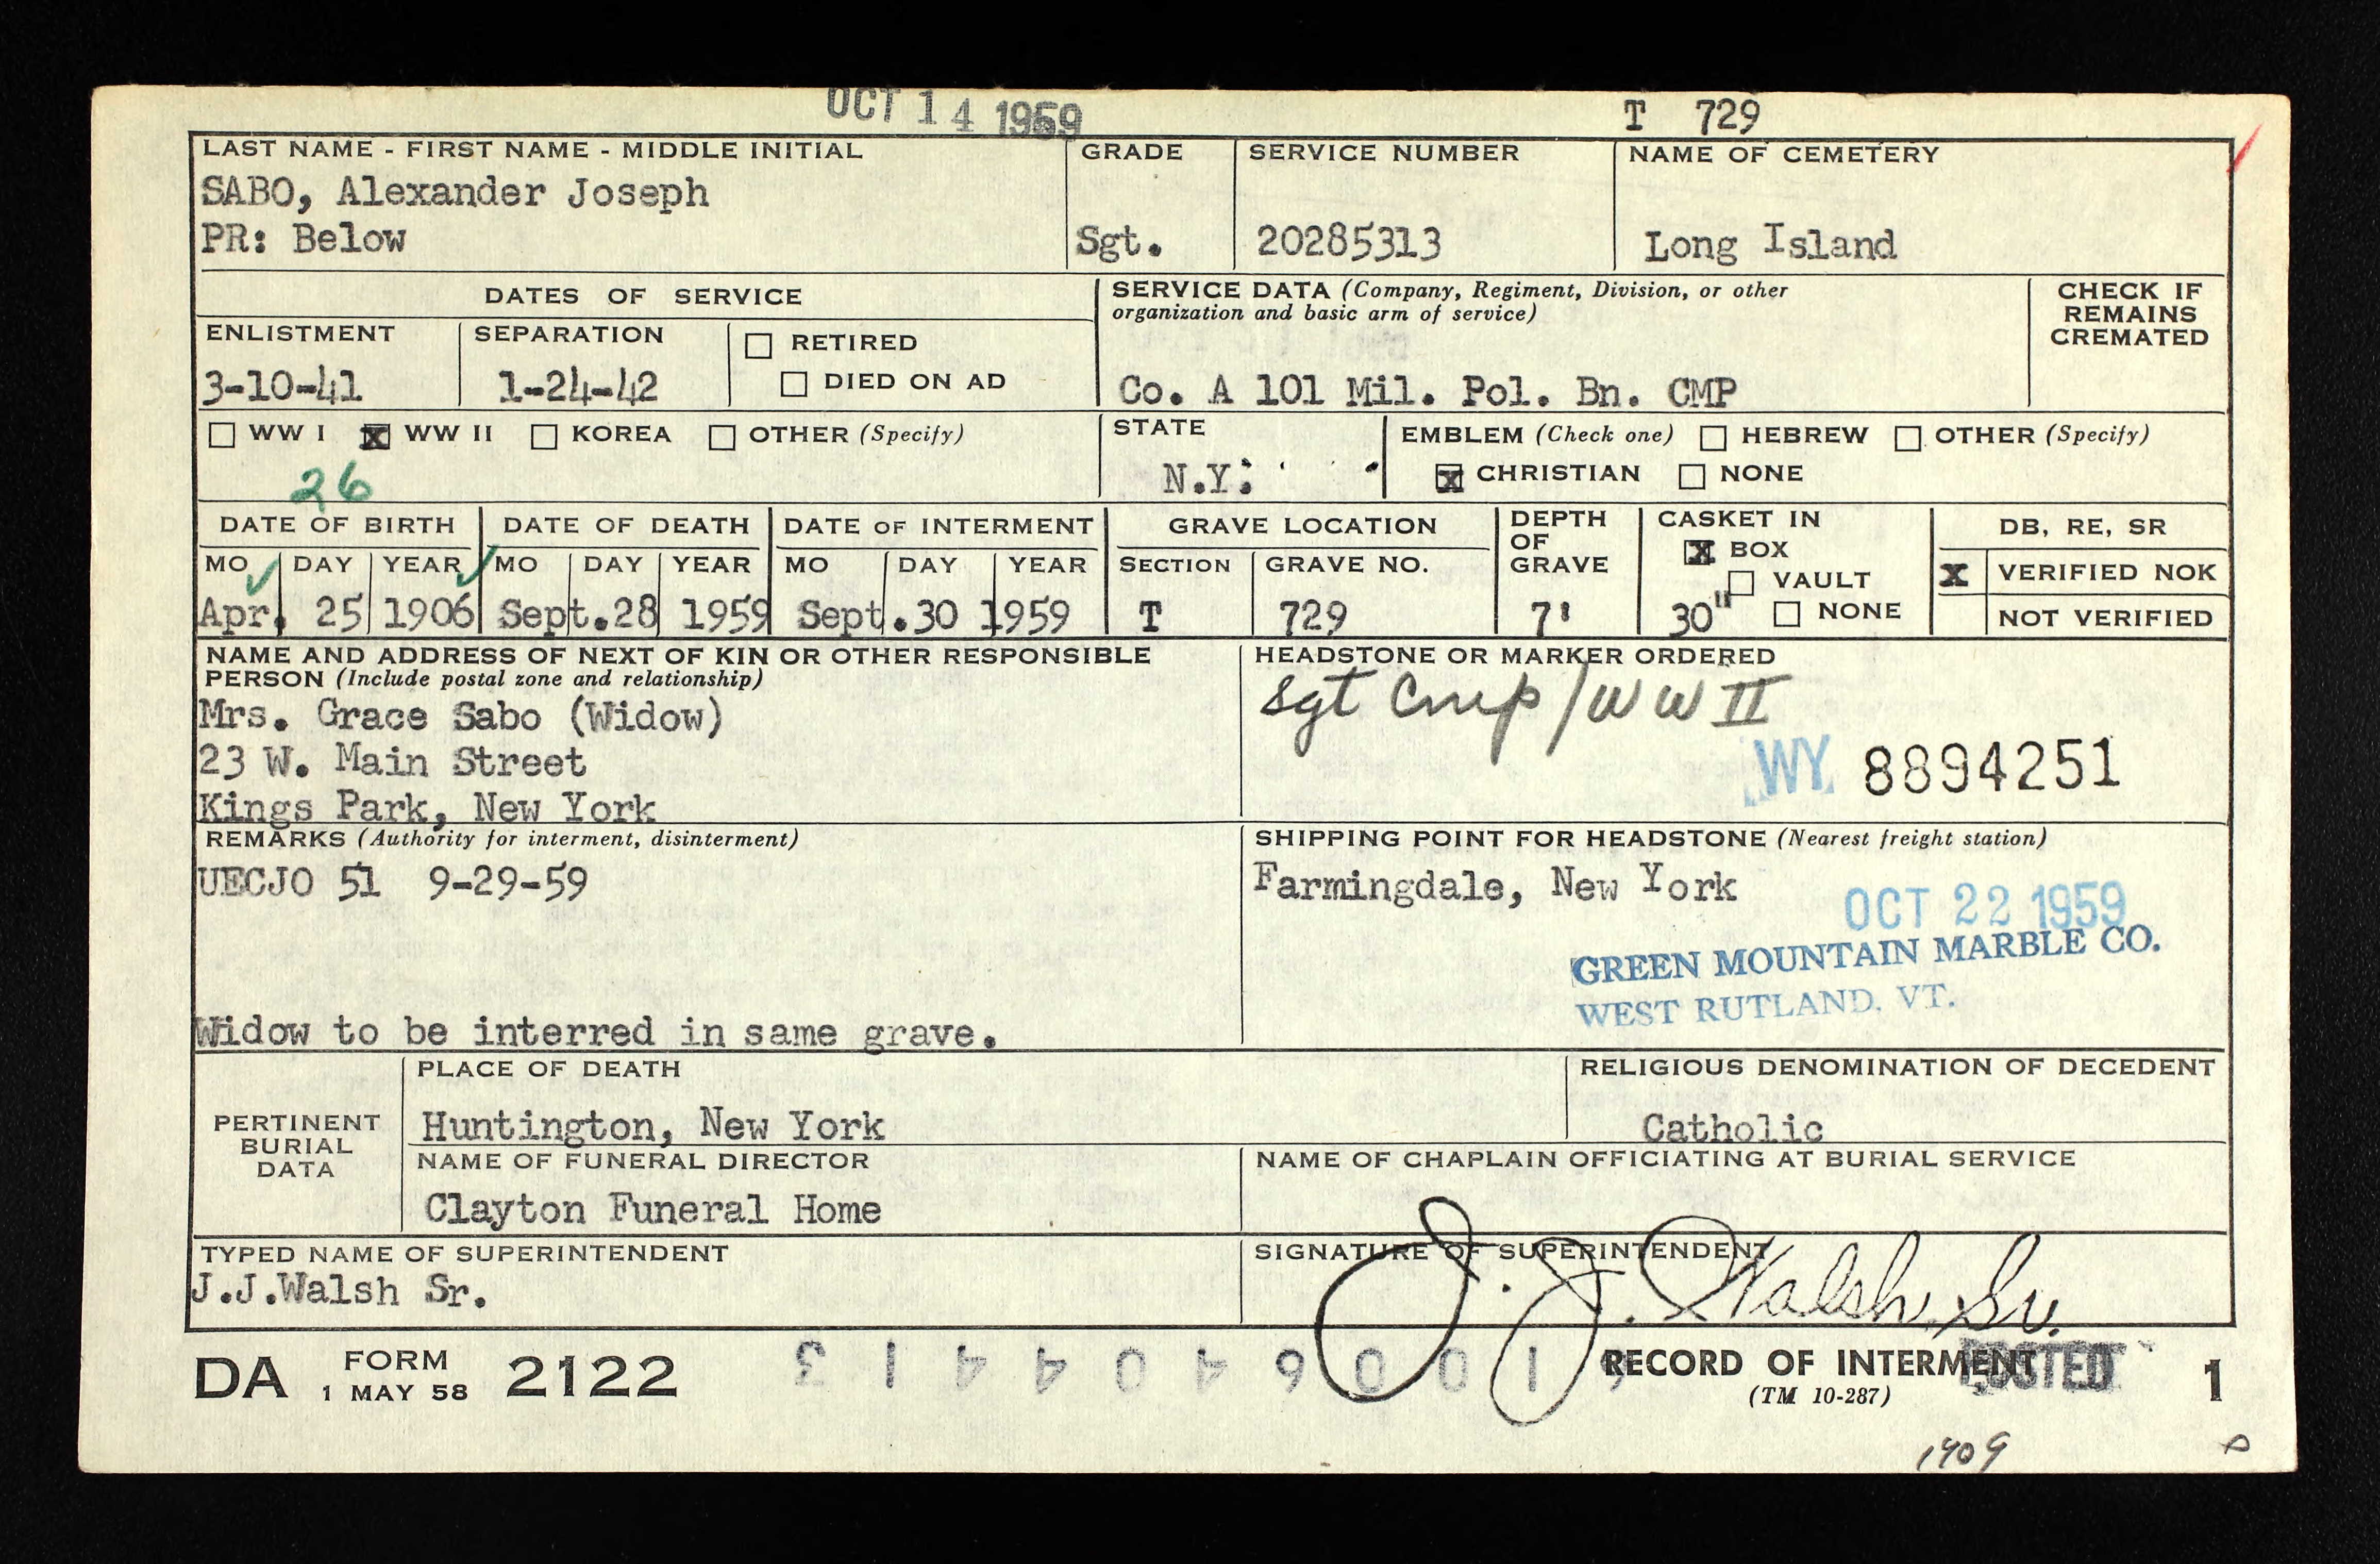 OCT 14 1959
T 729
LAST NAME - FIRST NAME - MIDDLE INITIAL
SABO, Alexander Joseph
PR: Below
GRADE
Sgt.
SERVICE NUMBER
20285313
NAME OF CEMETERY
Long Island
DATES OF SERVICE
ENLISTMENT
3-10-41
SEPARATION
1-24-42
RETIRED
DIED ON AD
SERVICE DATA (Company, Regiment, Division, or other
organization and basic arm of service)
Co. A 101 Mil. Pol. Bn. CMP
CHECK IF
REMAINS
CREMATED
WW I X WW II KOREA OTHER (Specify)
26
STATE
N.Y.
EMBLEM (Check one) HEBREW OTHER (Specify)
X CHRISTIAN NONE
DATE OF BIRTH
MO DAY YEAR
Apr. 25 1906
DATE OF DEATH
MO DAY YEAR
Sept. 28 1959
DATE OF INTERMENT
MO DAY YEAR
Sept. 30 1959
GRAVE LOCATION
SECTION GRAVE NO.
T 729
DEPTH
OF
GRAVE
7'
CASKET IN
X BOX
VAULT
30" NONE
DB, RE, SR
X VERIFIED NOK
NOT VERIFIED
NAME AND ADDRESS OF NEXT OF KIN OR OTHER RESPONSIBLE
PERSON (Include postal zone and relationship)
Mrs. Grace Sabo (Widow)
23 W. Main Street
Kings Park, New York
HEADSTONE OR MARKER ORDERED
Sgt Cmp / WW II
WY 8894251
REMARKS (Authority for interment, disinterment)
UECJO 51 9-29-59
Widow to be interred in same grave.
SHIPPING POINT FOR HEADSTONE (Nearest freight station)
Farmingdale, New York
OCT 22 1959
GREEN MOUNTAIN MARBLE CO.
WEST RUTLAND, VT.
PERTINENT
BURIAL
DATA
PLACE OF DEATH
Huntington, New York
RELIGIOUS DENOMINATION OF DECEDENT
Catholic
NAME OF FUNERAL DIRECTOR
Clayton Funeral Home
NAME OF CHAPLAIN OFFICIATING AT BURIAL SERVICE
TYPED NAME OF SUPERINTENDENT
J.J.Walsh Sr.
SIGNATURE OF SUPERINTENDENT
J. J. Walsh, Sr.
DA FORM 2122
1 MAY 58
RECORD OF INTERMENT
(TM 10-287)
POSTED
1
1909